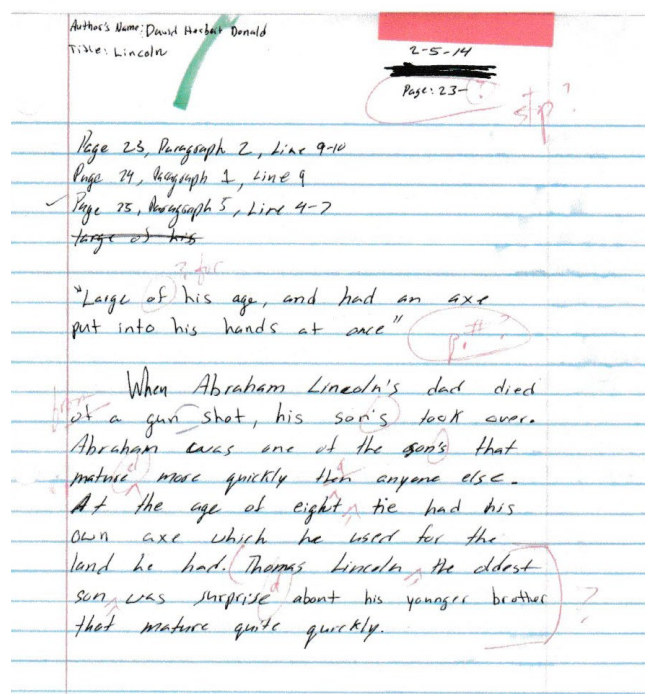 Author's Name: David Herbert Donald
Title: Lincoln
2-5-14
Page: 23- ?
stp?
Page 23, Paragraph 2, Line 9-10
Page 24, Paragraph 1, Line 9
Page 25, Paragraph 5, Line 4-7
large of his
? for
"Large of his age, and had an axe
put into his hands at once"
p.#?
When Abraham Lincoln's dad died
from
of a gun shot, his son's took over.
Abraham was one of the son's that
d a
mature more quickly then anyone else.
At the age of eight, he had his
own axe which he used for the
land he had. Thomas Lincoln, the oldest
d
son, was surprise about his younger brother
?
that mature quite quickly.